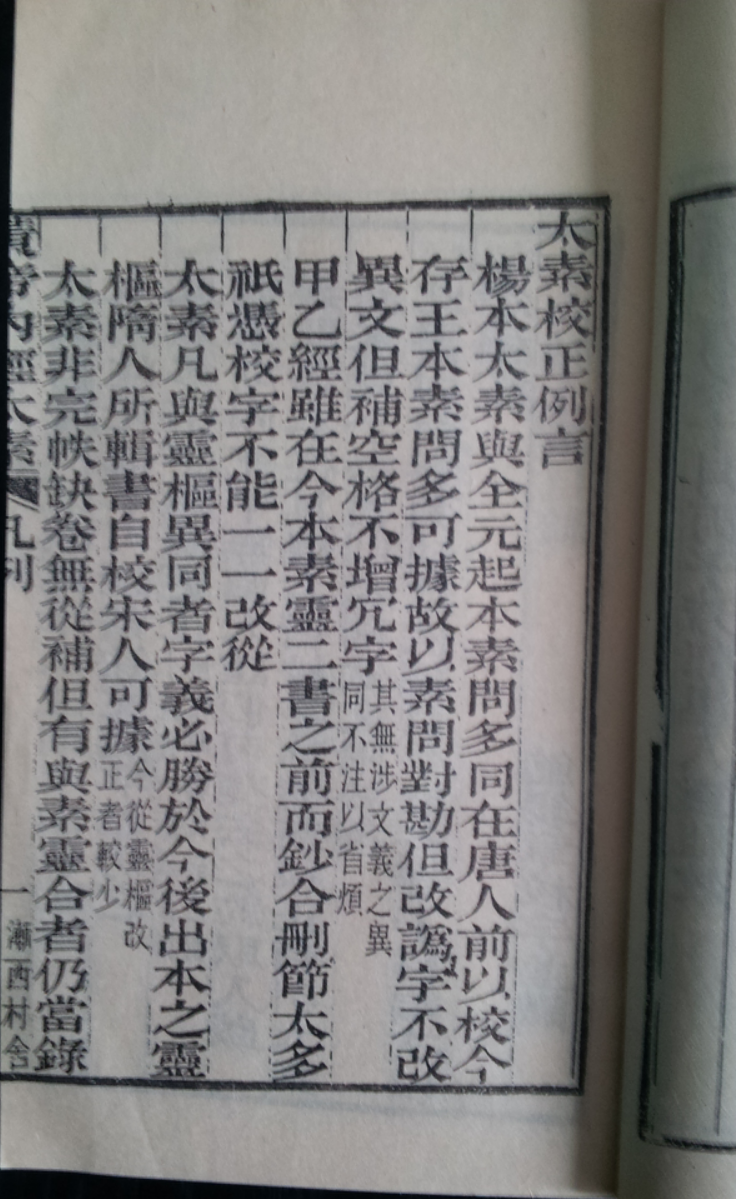 太素校正例言
楊本太素與全元起本素問多同在唐人前以校今
存王本素問多可據故以素問對勘但改譌字不改
異文但補空格不增冗字其無涉文義之異
同不注以省煩
甲乙經雖在今本素靈二書之前而鈔合刪節太多
祇憑校字不能一一改從
太素凡與靈樞異同者字義必勝於今後出本之靈
樞隋人所輯書自校宋人可據今從靈樞改
正者較少
太素非完帙缺卷無從補但有與素靈合者仍當錄
黃帝內經太素 凡例 一 漸西村舍